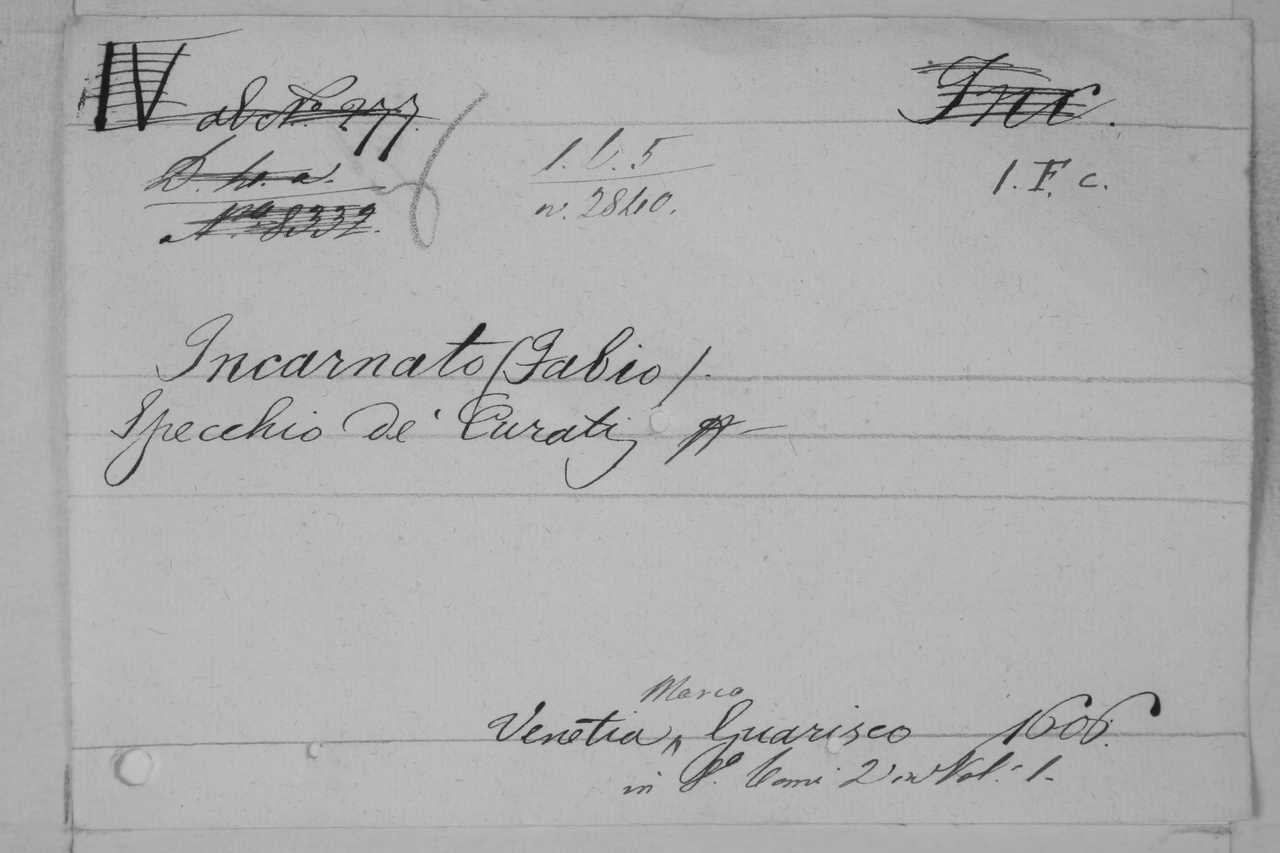 IV
N.º 277.
Inc.
1. b. 5
1. F. c.
N.º 8332.
n. 2840.
Incarnato (Fabio).
Specchio de' Curati
Marco
Venetia, Guarisco 1606.
in 8º. tomi 2 in Vol. 1.